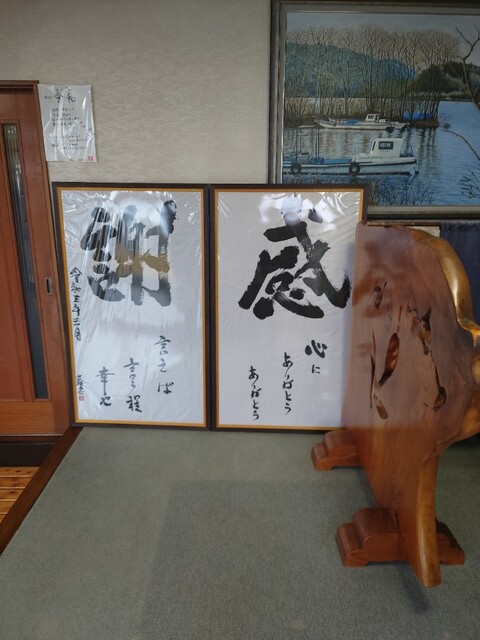 感
心に
ありがとう
ありがとう
謝
言えば
言う程
幸也
令和三年三月